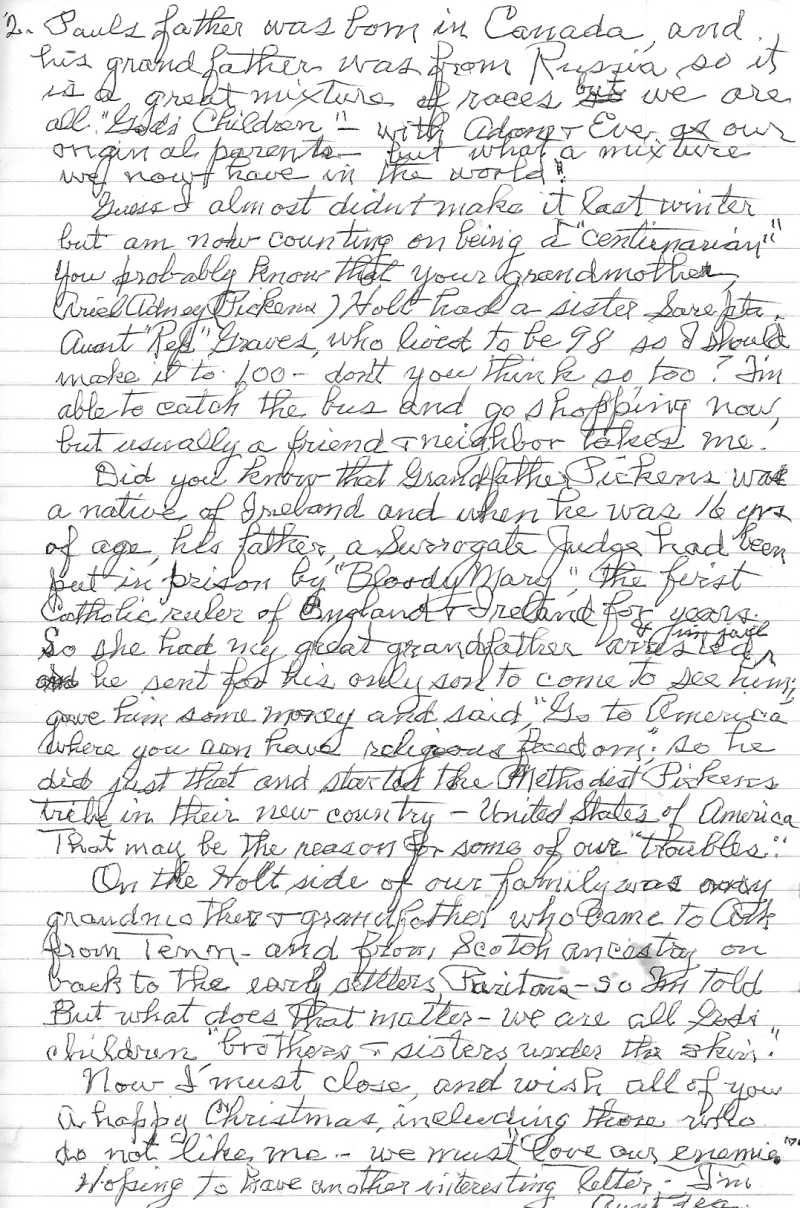 2. Pauls father was born in Canada, and
his grandfather was from Russia, so it
is a great mixture of races but we are
all "God's Children" - with Adam + Eve as our
original parents - but what a mixture
we now have in the world!
Guess I almost didn't make it last winter
but am now counting on being a "centinarian"
You probably know that your grandmother,
Adney (Pickens) Holt had a sister Sarepta
"Rep" Graves, who lived to be 98 so I should
make it to 100 - don't you think so, too? I'm
able to catch the bus and go shopping now,
but usually a friend + neighbor takes me.
Did you know that Grandfather Pickens was
a native of Ireland and when he was 16 yrs
of age, his father, a Surrogate Judge had been
put in prison by "Bloody Mary", the first
Catholic ruler of England + Ireland for years.
So she had my great grandfather arrested + in jail
he sent for his only son to come to see him,
gave him some money and said, "Go to America
where you can have religious freedom," so he
did just that and started the Methodist Pickens
tribe in their new country - United States of America
That may be the reason for some of our "troubles."
On the Holt side of our family was my
grandmother + grandfather who came to
from Tenn - and from Scotch ancestry on
back to the early settlers, Puritans - so I'm told
But what does that matter - we are all Gods
children "brothers + sisters under the skin."
Now I must close, and wish all of you
a happy Christmas, including those who
do not like me - we must "love our enemies"
Hoping to have another interesting letter - I'm
Aunt